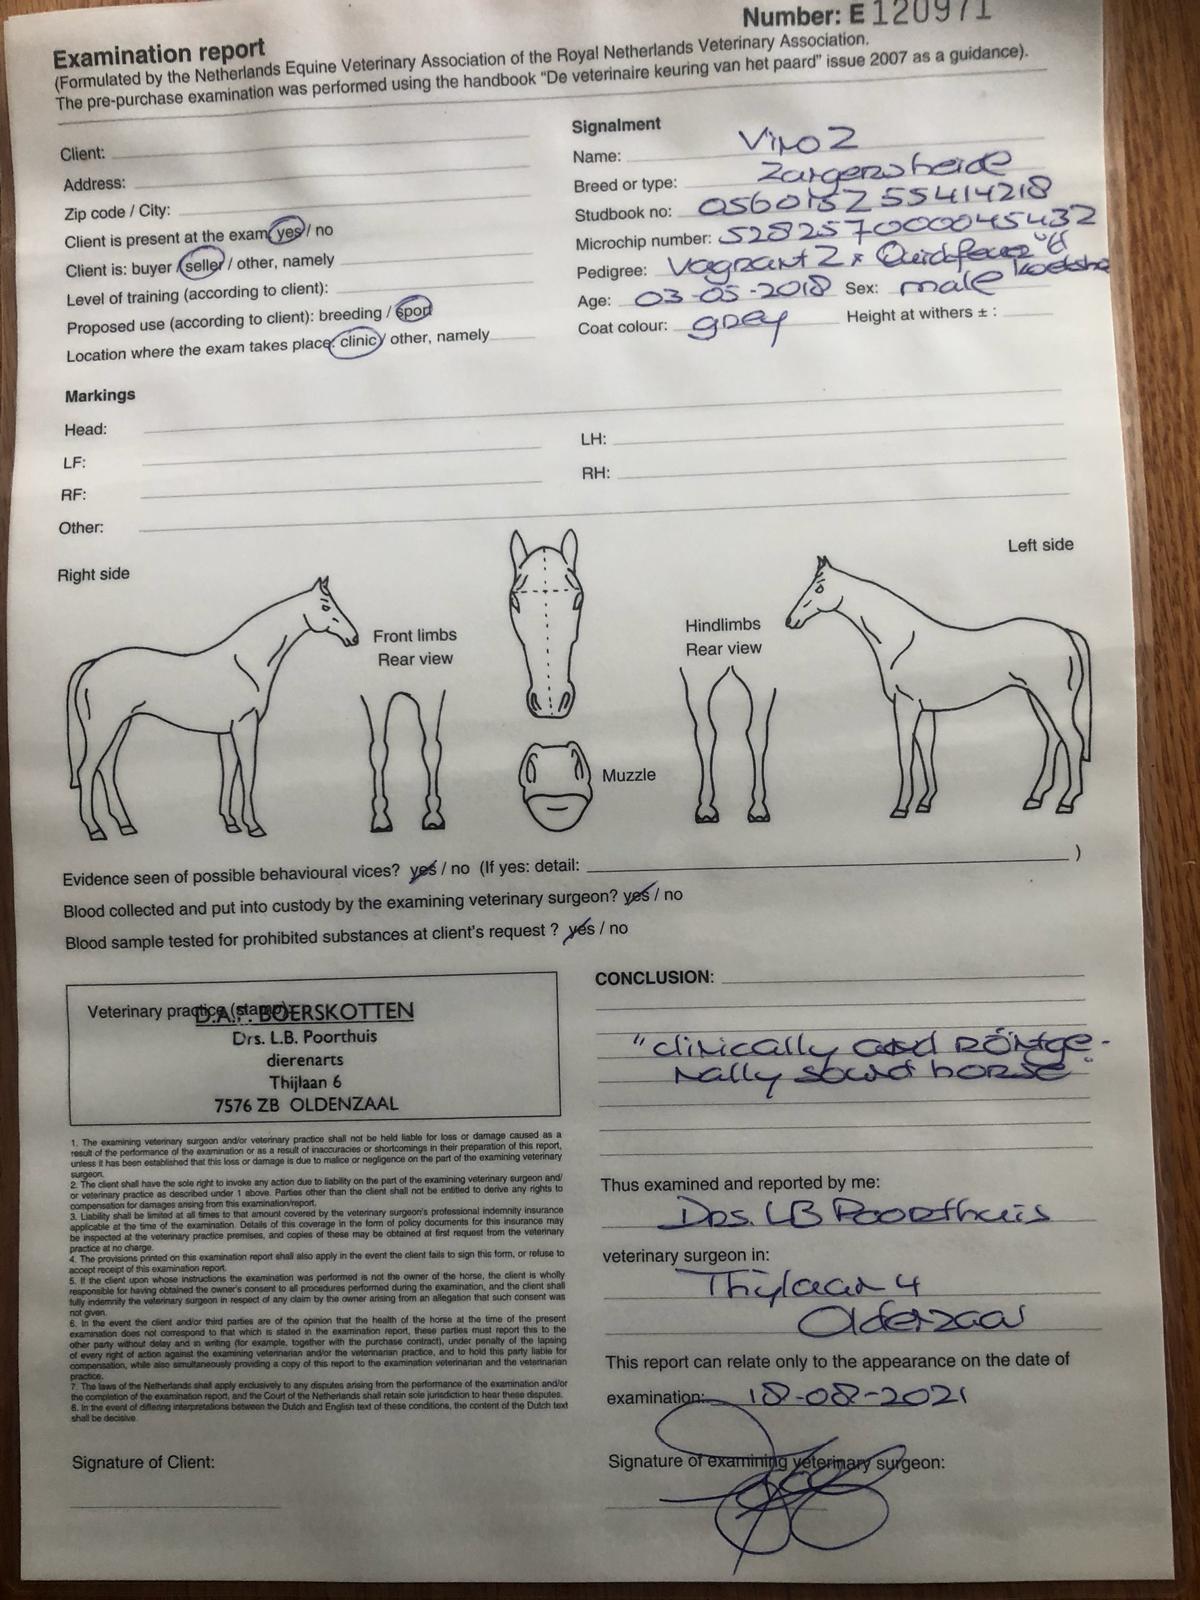 Number: E 120971
Examination report
(Formulated by the Netherlands Equine Veterinary Association of the Royal Netherlands Veterinary Association.
The pre-purchase examination was performed using the handbook “De veterinaire keuring van het paard” issue 2007 as a guidance).
Client:
Address:
Zip code / City:
Client is present at the exam: yes / no
Client is: buyer / seller / other, namely
Level of training (according to client):
Proposed use (according to client): breeding / sport
Location where the exam takes place: clinic / other, namely
Signalment
Name: Vino Z
Breed or type: Zangersheide
Studbook no: 056015Z 55414218
Microchip number: 528257000045432
Pedigree: Vagrant Z x Quickfeuer "d Koekshof
Age: 03-05-2018 Sex: male
Coat colour: grey Height at withers ± :
Markings
Head:
LF:
LH:
RF:
RH:
Other:
Right side
Left side
Front limbs
Rear view
Hindlimbs
Rear view
Muzzle
Evidence seen of possible behavioural vices? yes / no (If yes: detail: )
Blood collected and put into custody by the examining veterinary surgeon? yes / no
Blood sample tested for prohibited substances at client's request ? yes / no
Veterinary practice (stamp):
D.A.P. BOERSKOTTEN
Drs. L.B. Poorthuis
dierenarts
Thijlaan 6
7576 ZB OLDENZAAL
CONCLUSION:
"clinically and röntge-
nally sound horse"
1. The examining veterinary surgeon and/or veterinary practice shall not be held liable for loss or damage caused as a
result of the performance of the examination or as a result of inaccuracies or shortcomings in their preparation of this report,
unless it has been established that this loss or damage is due to malice or negligence on the part of the examining veterinary
surgeon.
2. The client shall have the sole right to invoke any action due to liability on the part of the examining veterinary surgeon and/
or veterinary practice as described under 1 above. Parties other than the client shall not be entitled to derive any rights to
compensation for damages arising from this examination/report.
3. Liability shall be limited at all times to that amount covered by the veterinary surgeon's professional indemnity insurance
applicable at the time of the examination. Details of this coverage in the form of policy documents for this insurance may
be inspected at the veterinary practice premises, and copies of these may be obtained at first request from the veterinary
practice at no charge.
4. The provisions printed on this examination report shall also apply in the event the client fails to sign this form, or refuse to
accept receipt of this examination report.
5. If the client upon whose instructions the examination was performed is not the owner of the horse, the client is wholly
responsible for having obtained the owner's consent to all procedures performed during the examination, and the client shall
fully indemnify the veterinary surgeon in respect of any claim by the owner arising from an allegation that such consent was
not given.
6. In the event the client and/or third parties are of the opinion that the health of the horse at the time of the present
examination does not correspond to that which is stated in the examination report, these parties must report this to the
other party without delay and in writing (for example, together with the purchase contract), under penalty of the lapsing
of every right of action against the examining veterinarian and/or the veterinarian practice, and to hold this party liable for
compensation, while also simultaneously providing a copy of this report to the examination veterinarian and the veterinarian
practice.
7. The laws of the Netherlands shall apply exclusively to any disputes arising from the performance of the examination and/or
the completion of the examination report, and the Court of the Netherlands shall retain sole jurisdiction to hear these disputes.
8. In the event of differing interpretations between the Dutch and English text of these conditions, the content of the Dutch text
shall be decisive.
Thus examined and reported by me:
Drs. LB Poorthuis
veterinary surgeon in:
Thijlaan 4
Oldenzaal
This report can relate only to the appearance on the date of
examination: 18-08-2021
Signature of Client:
Signature of examining veterinary surgeon: